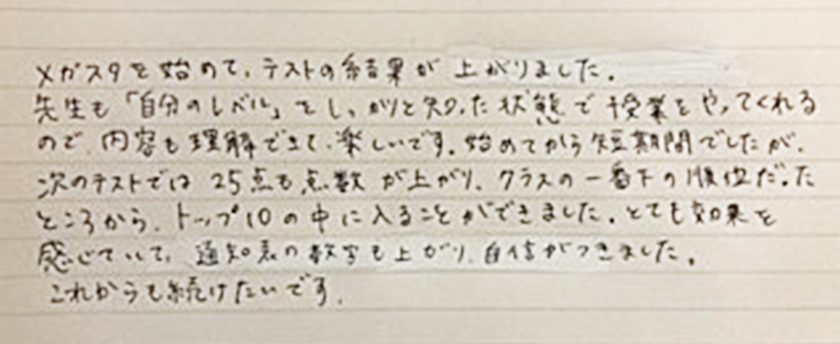 メガスタを始めて、テストの結果が上がりました。
先生も「自分のレベル」をしっかりと知った状態で授業をやってくれる
ので、内容も理解できて、楽しいです。始めてから短期間でしたが、
次のテストでは25点も点数が上がり、クラスの一番下の順位だった
ところから、トップ10の中に入ることができました。とても効果を
感じていて、通知表の数字も上がり、自信がつきました。
これからも続けたいです。